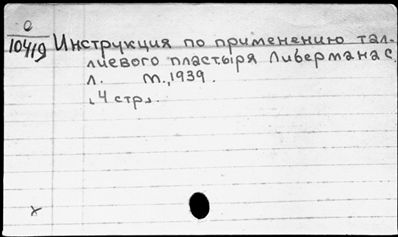 О
10419 Инструкция по применению тал-
лиевого пластыря Либермана С.
Л. М., 1939.
[4 стр].